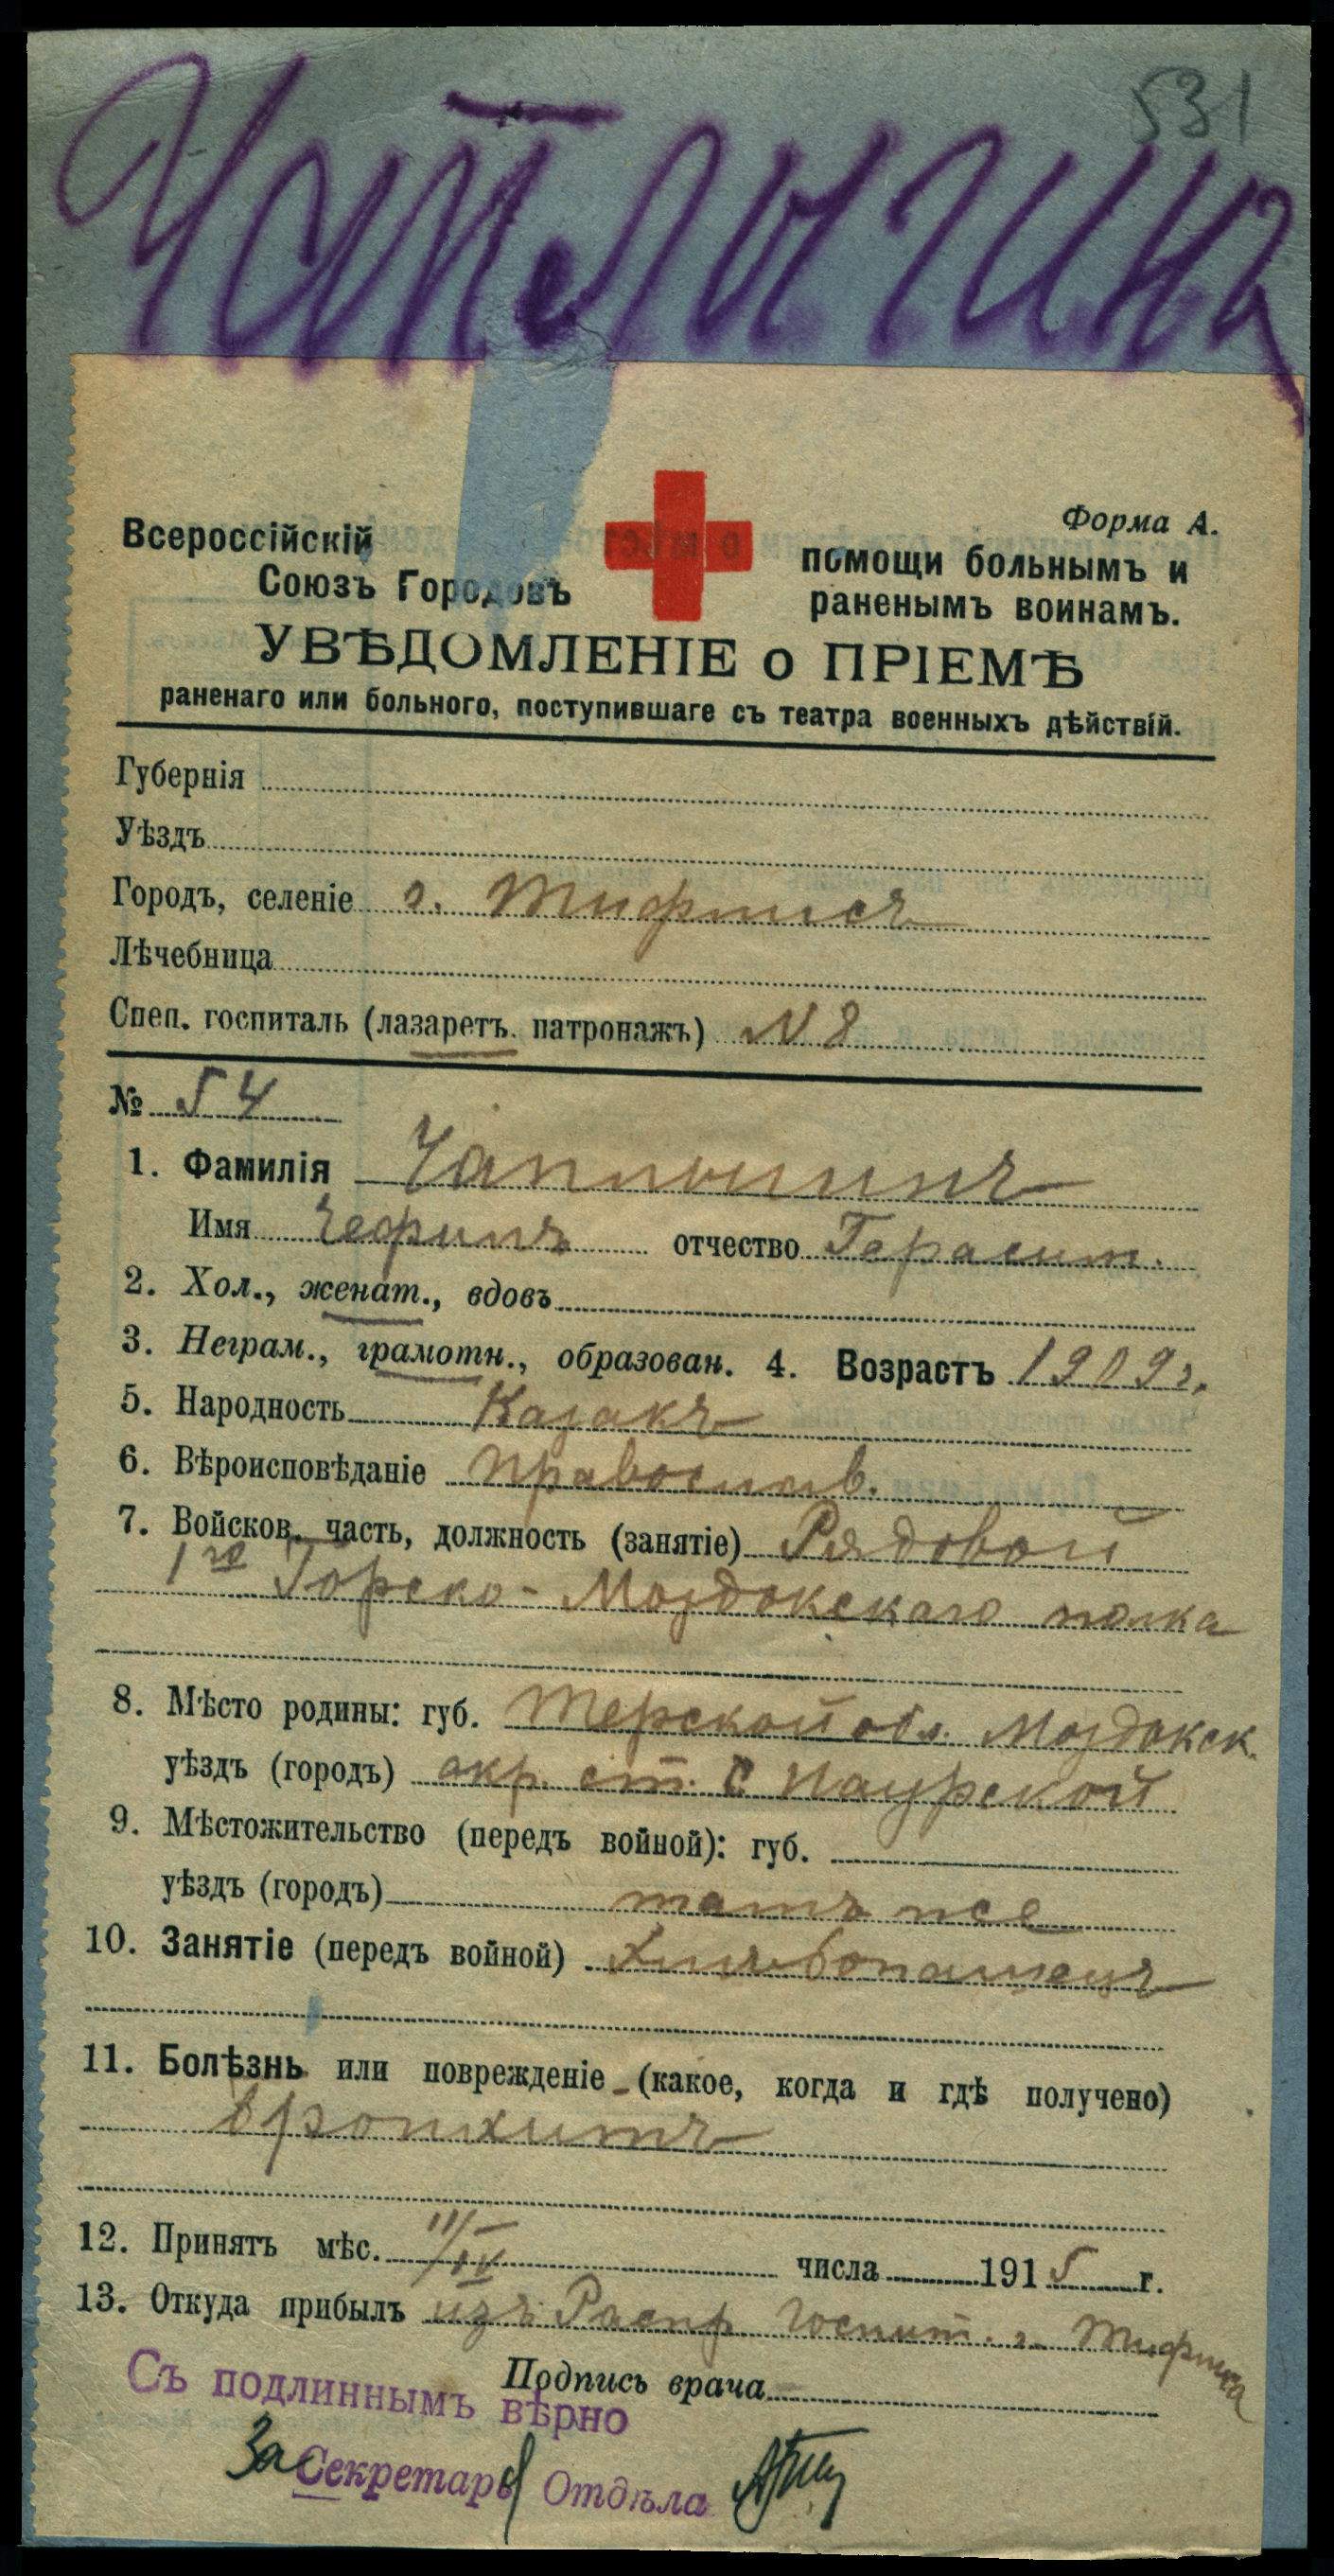 531
Форма А.
Всероссійскій
Союзъ Городовъ
помощи больнымъ и
раненымъ воинамъ.
УВѢДОМЛЕНІЕ о ПРІЕМѢ
раненаго или больного, поступившаго съ театра военныхъ дѣйствій.
Губернія
Уѣздъ
Городъ, селеніе г. Тифлисъ
Лѣчебница
Спец. госпиталь (лазаретъ. патронажъ) № 8
№ 54
1. Фамилія Чаплыгинъ
Имя отчество Герасим.
2. Хол., женат., вдовъ
3. Неграм., грамотн., образован. 4. Возрастъ 1909г.
5. Народность Казакъ
6. Вѣроисповѣданіе православ.
7. Войсков. часть, должность (занятіе) Рядовой
1го Горско-Моздокскаго полка
8. Мѣсто родины: губ. Терской обл. Моздокск.
уѣздъ (городъ) окр. ст. Наурской
9. Мѣстожительство (передъ войной): губ.
уѣздъ (городъ) тамъ же
10. Занятіе (передъ войной) Хлѣбопашецъ
11. Болѣзнь или поврежденіе (какое, когда и гдѣ получено)
бронхитъ
12. Принятъ мѣс. 11/IV числа 1915 г.
13. Откуда прибылъ изъ Распр. Госпит. г. Тифлиса
Подпись врача
Съ подлиннымъ вѣрно
За Секретаря Отдѣла